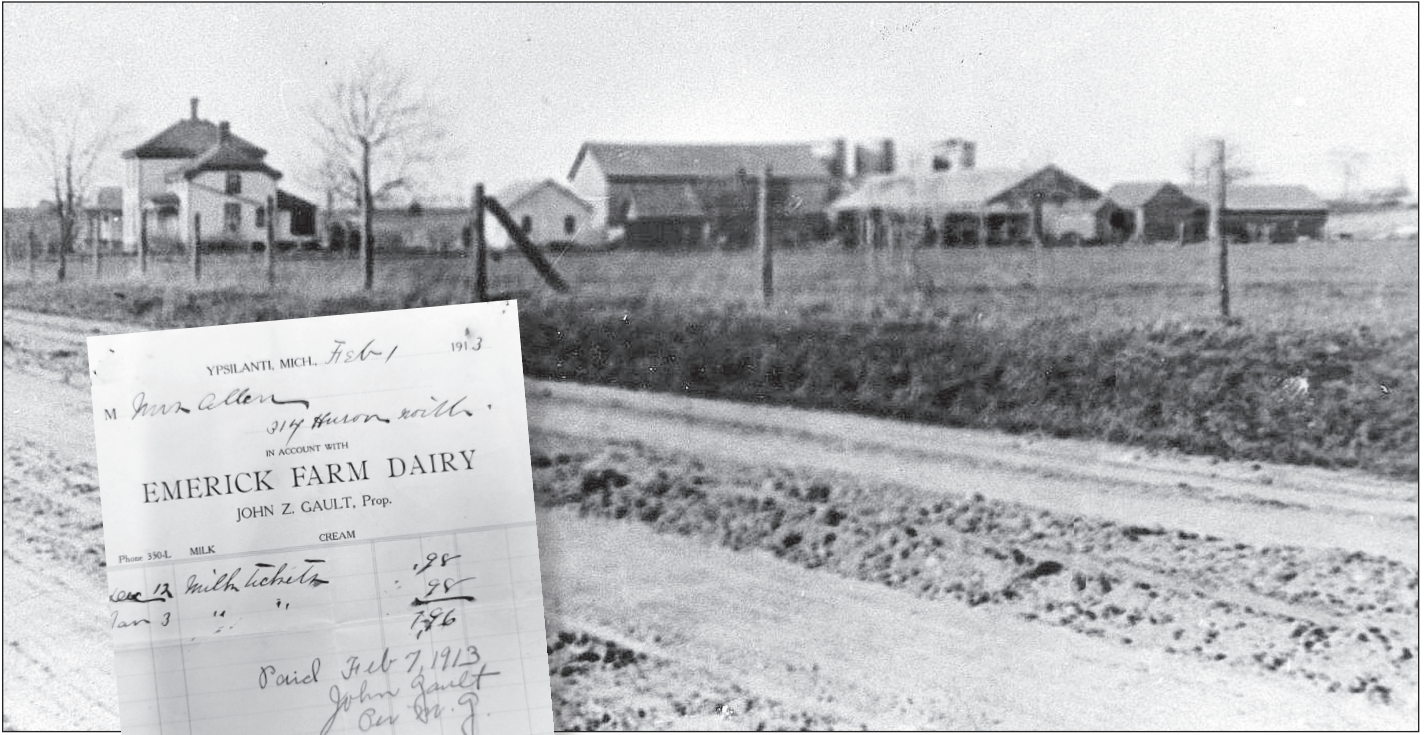 YPSILANTI, MICH., Feb 1 1913
M Mrs Allen
314 Huron
IN ACCOUNT WITH
EMERICK FARM DAIRY
JOHN Z. GAULT, Prop.
Phone 350-L MILK CREAM
Dec 12 Milk tickets .98
Jan 3 " " 98
1.96
Paid Feb 7, 1913
John Gault
Per M. G.